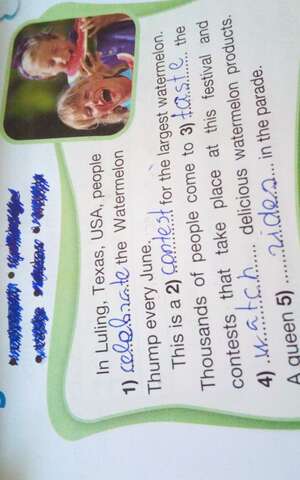 In Luling, Texas, USA, people
1) celebrate the Watermelon
Thump every June.
This is a 2) contest for the largest watermelon.
Thousands of people come to 3) taste the
contests that take place at this festival and
4) watch delicious watermelon products.
A queen 5) rides in the parade.